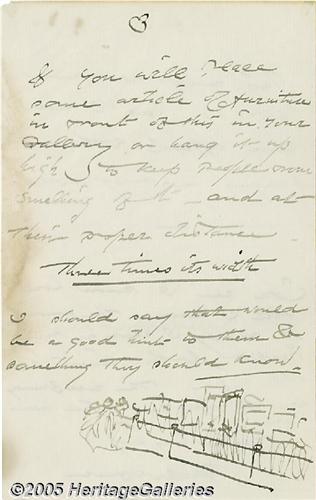 3
If you will Place
some article of furniture
in front of this in your
Gallery or hang it up
high to keep people from
smelling of it - and at
their proper distance -
three times its width
I should say that would
be a good hint to them &
something they should know.
©2005 HeritageGalleries